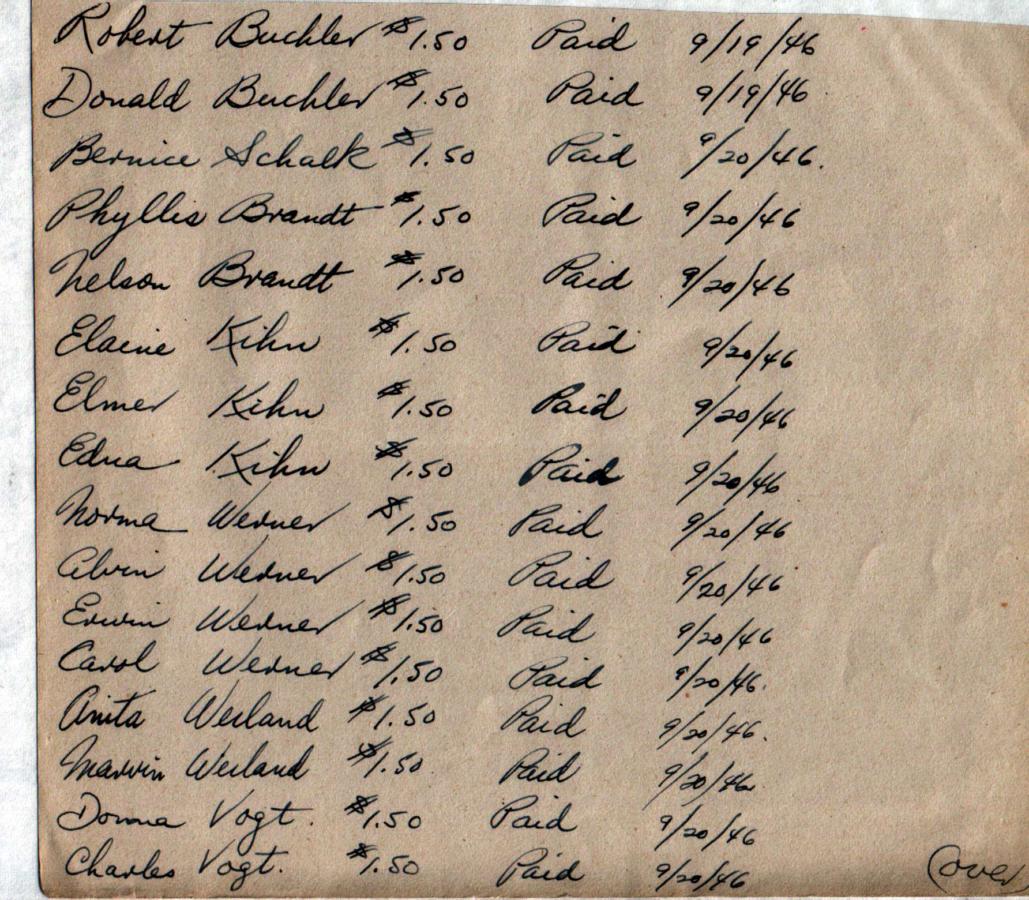 Robert Buchler $1.50 Paid 9/19/46
Donald Buchler $1.50 Paid 9/19/46.
Bernice Schalk $1.50 Paid 9/20/46.
Phyllis Brandt $1.50 Paid 9/20/46
Nelson Brandt $1.50 Paid 9/20/46
Elaine Kihn $1.50 Paid 9/20/46
Elmer Kihn $1.50 Paid 9/20/46
Edna Kihn $1.50 Paid 9/20/46
Norma Werner $1.50 Paid 9/20/46
Alvin Werner $1.50 Paid 9/20/46
Erwin Werner $1.50 Paid 9/20/46
Carol Werner $1.50 Paid 9/20/46.
Anita Weiland $1.50 Paid 9/20/46.
Marvin Weiland $1.50 Paid 9/20/46.
Donna Vogt. $1.50 Paid 9/20/46
Charles Vogt. $1.50 Paid 9/20/46
(over)